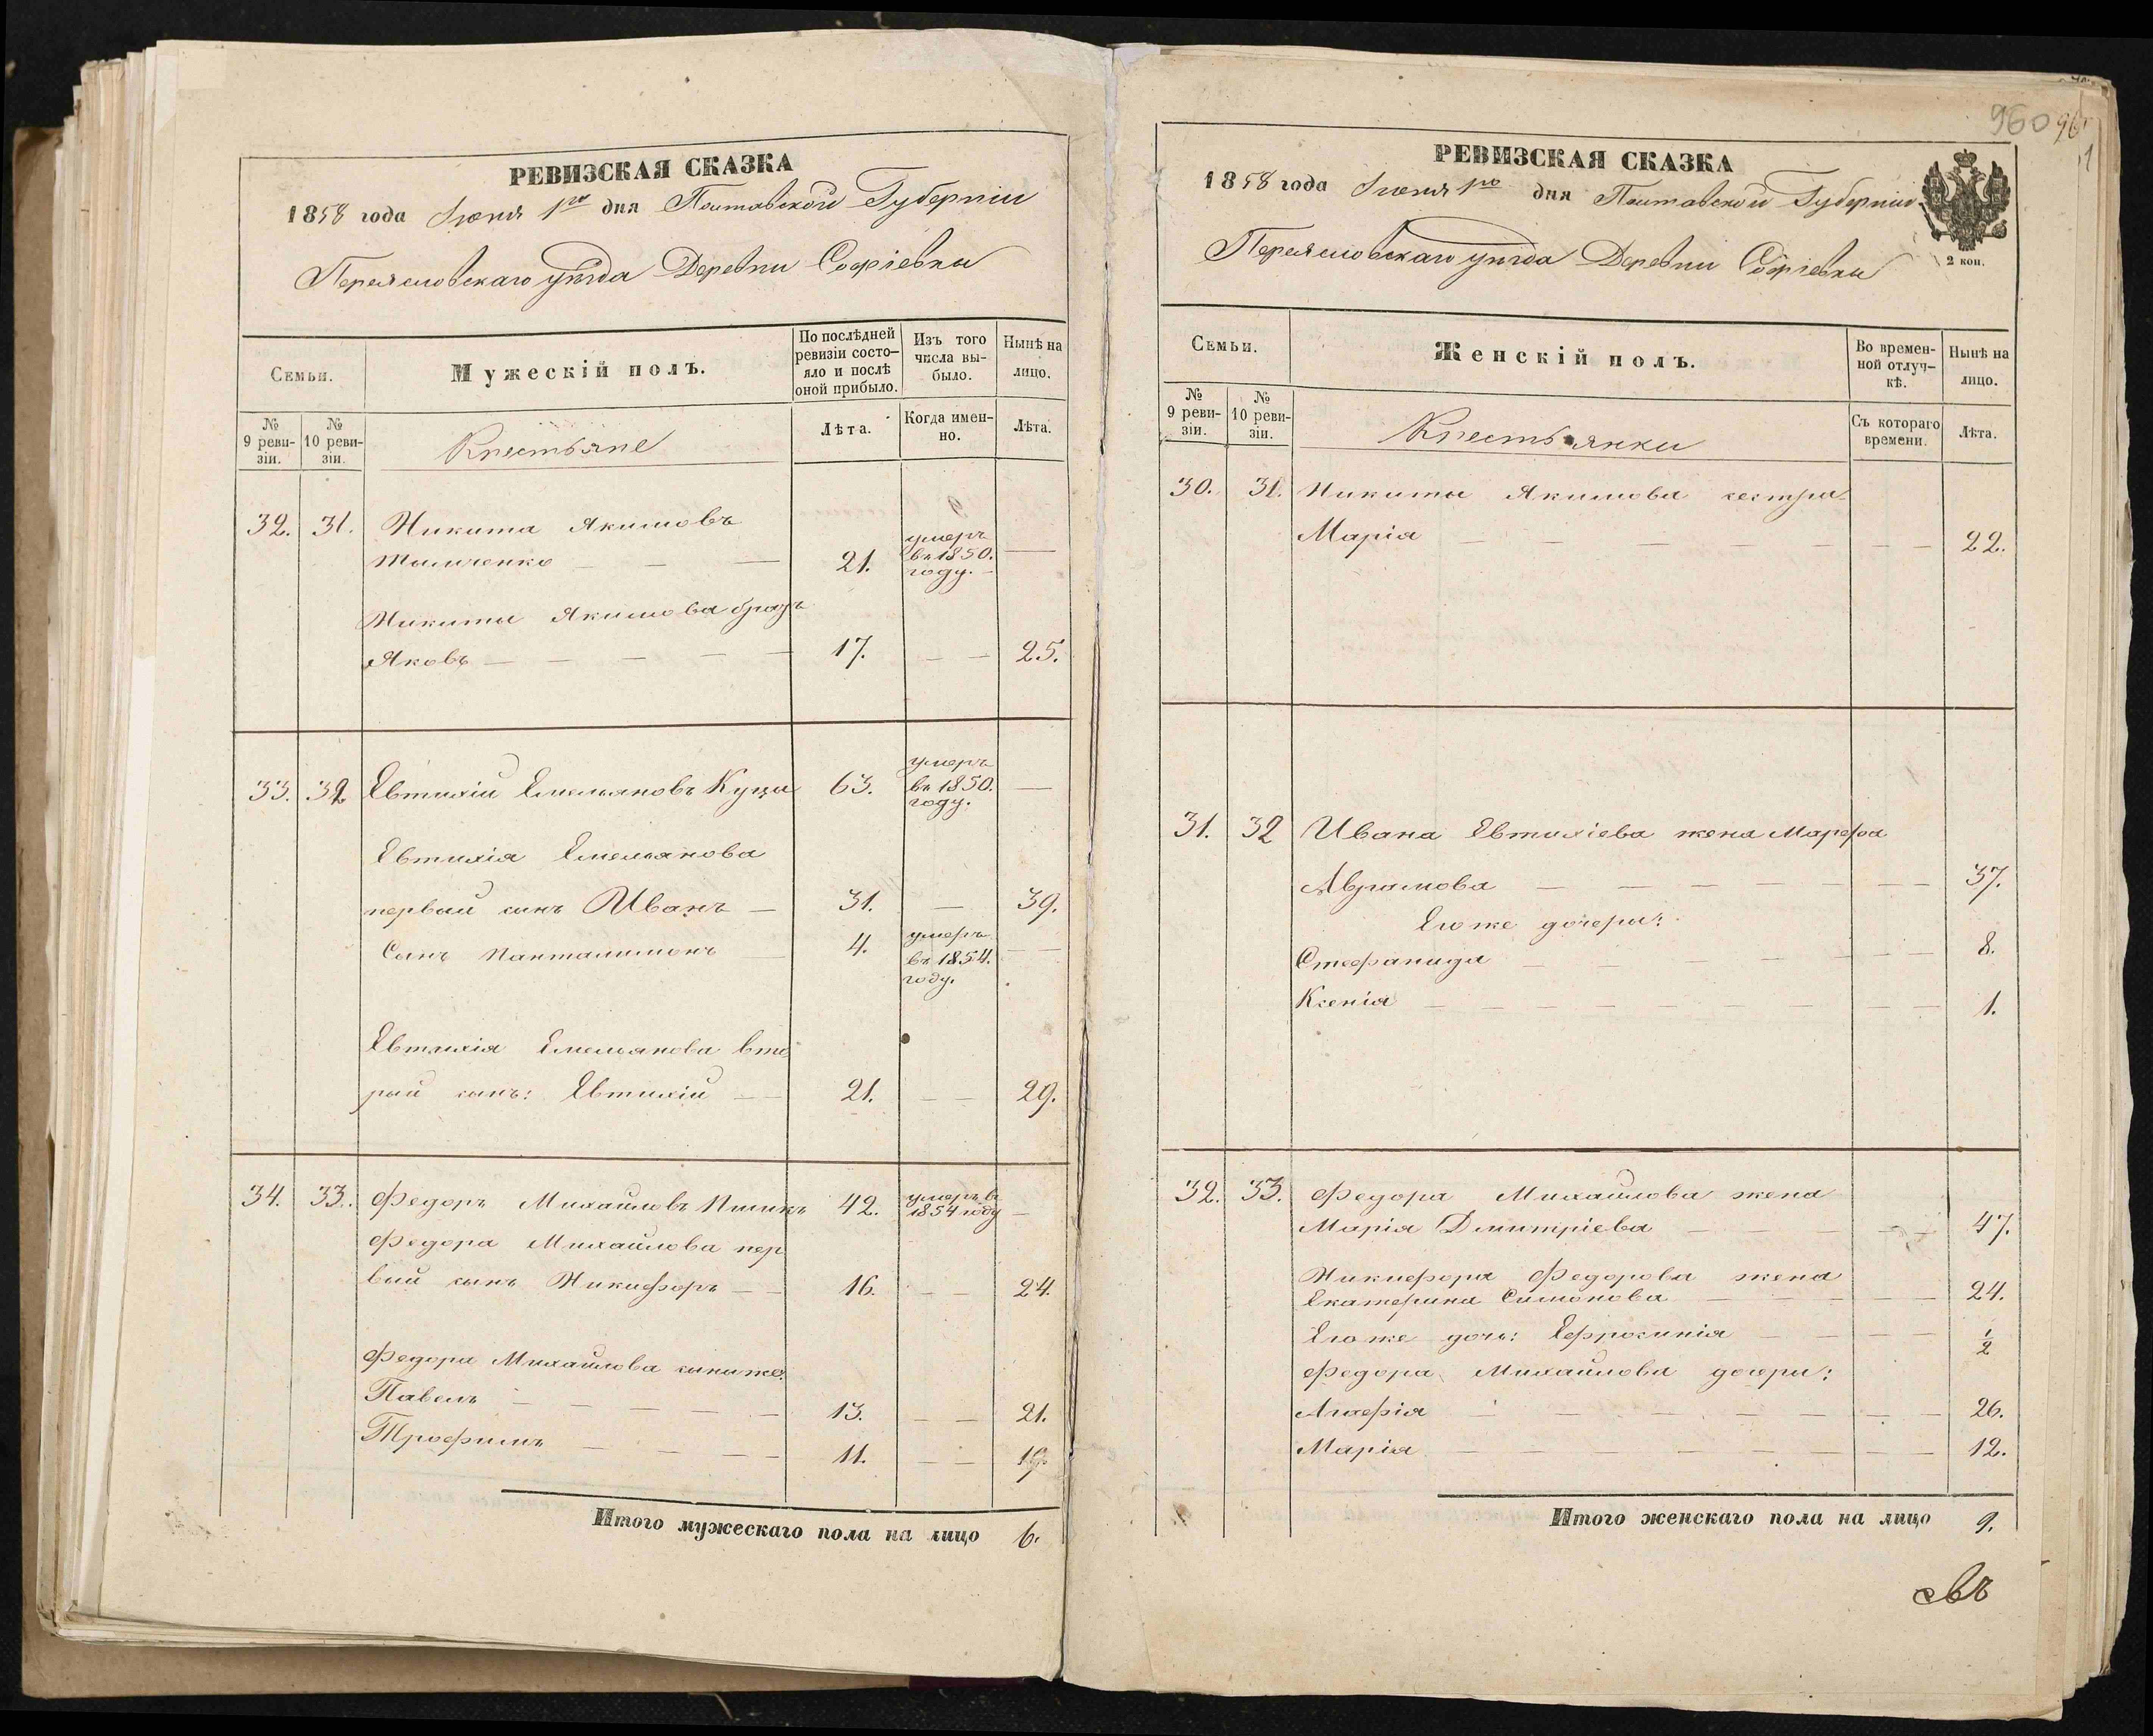 РЕВИЗСКАЯ СКАЗКА
1858 года Июня 1го дня Полтавской Губерніи
Переясловскаго уѣзда Деревни Софіевки
Семьи.
Мужескій полъ.
По послѣдней ревизіи состо-
яло и послѣ оной прибыло.
Изъ того числа вы-
было.
Нынѣ на лицо.
№ 9 реви-
зіи.
№ 10 реви-
зіи.
Крестьяне
Лѣта.
Когда имен-
но.
Лѣта.
32. 31. Никита Якимовъ
Тимченко — — — 21. умеръ въ 1850. году. —
Никиты Якимова братъ
Яковъ — — — — — 17. — — 25.
33. 32 Евтихій Емельяновъ Куца 63. умеръ въ 1850. году. —
Евтихія Емельянова
первый сынъ Иванъ — 31. — 39.
Сынъ Панталимонъ — 4. умеръ въ 1854. году. —
Евтихія Емельянова вто
рый сынъ: Евтихій — — 21. — — 29.
34. 33. Федоръ Михайловъ 42. умеръ въ 1854 году —
Федора Михайлова пер
вый сынъ Никифоръ — — 16. — — 24.
Федора Михайлова сыны же:
Павелъ — — — — — — 13. — — 21.
Трофимъ — — — — 11. — — 19.
Итого мужескаго пола на лицо 6.
960
РЕВИЗСКАЯ СКАЗКА
1858 года Июня 1го дня Полтавской Губерніи
Переясловскаго уѣзда Деревни Софіевки
2 коп.
Семьи.
Женскій полъ.
Во времен-
ной отлуч-
кѣ.
Нынѣ на лицо.
№ 9 реви-
зіи.
№ 10 реви-
зіи.
Крестьянки
Съ котораго времени.
Лѣта.
30. 31. Никиты Якимова сестра
Марія — — — — — 22.
31. 32 Ивана Евтихіева жена Марефа
Аврамова — — — — — — — 37.
Его же дочери:
Стефанида — — — — — — — 8.
Ксенія — — — — — — — — 1.
32. 33. Федора Михайлова жена
Марія Дмитріева — — — — — 47.
Никифора Федорова жена
Екатерина Симонова — — — — — 24.
Его же дочь: Ефросинія — — — — ½
Федора Михайлова дочери:
— — — — — — — 26.
Марія — — — — — — — — 12.
Итого женскаго пола на лицо 9.